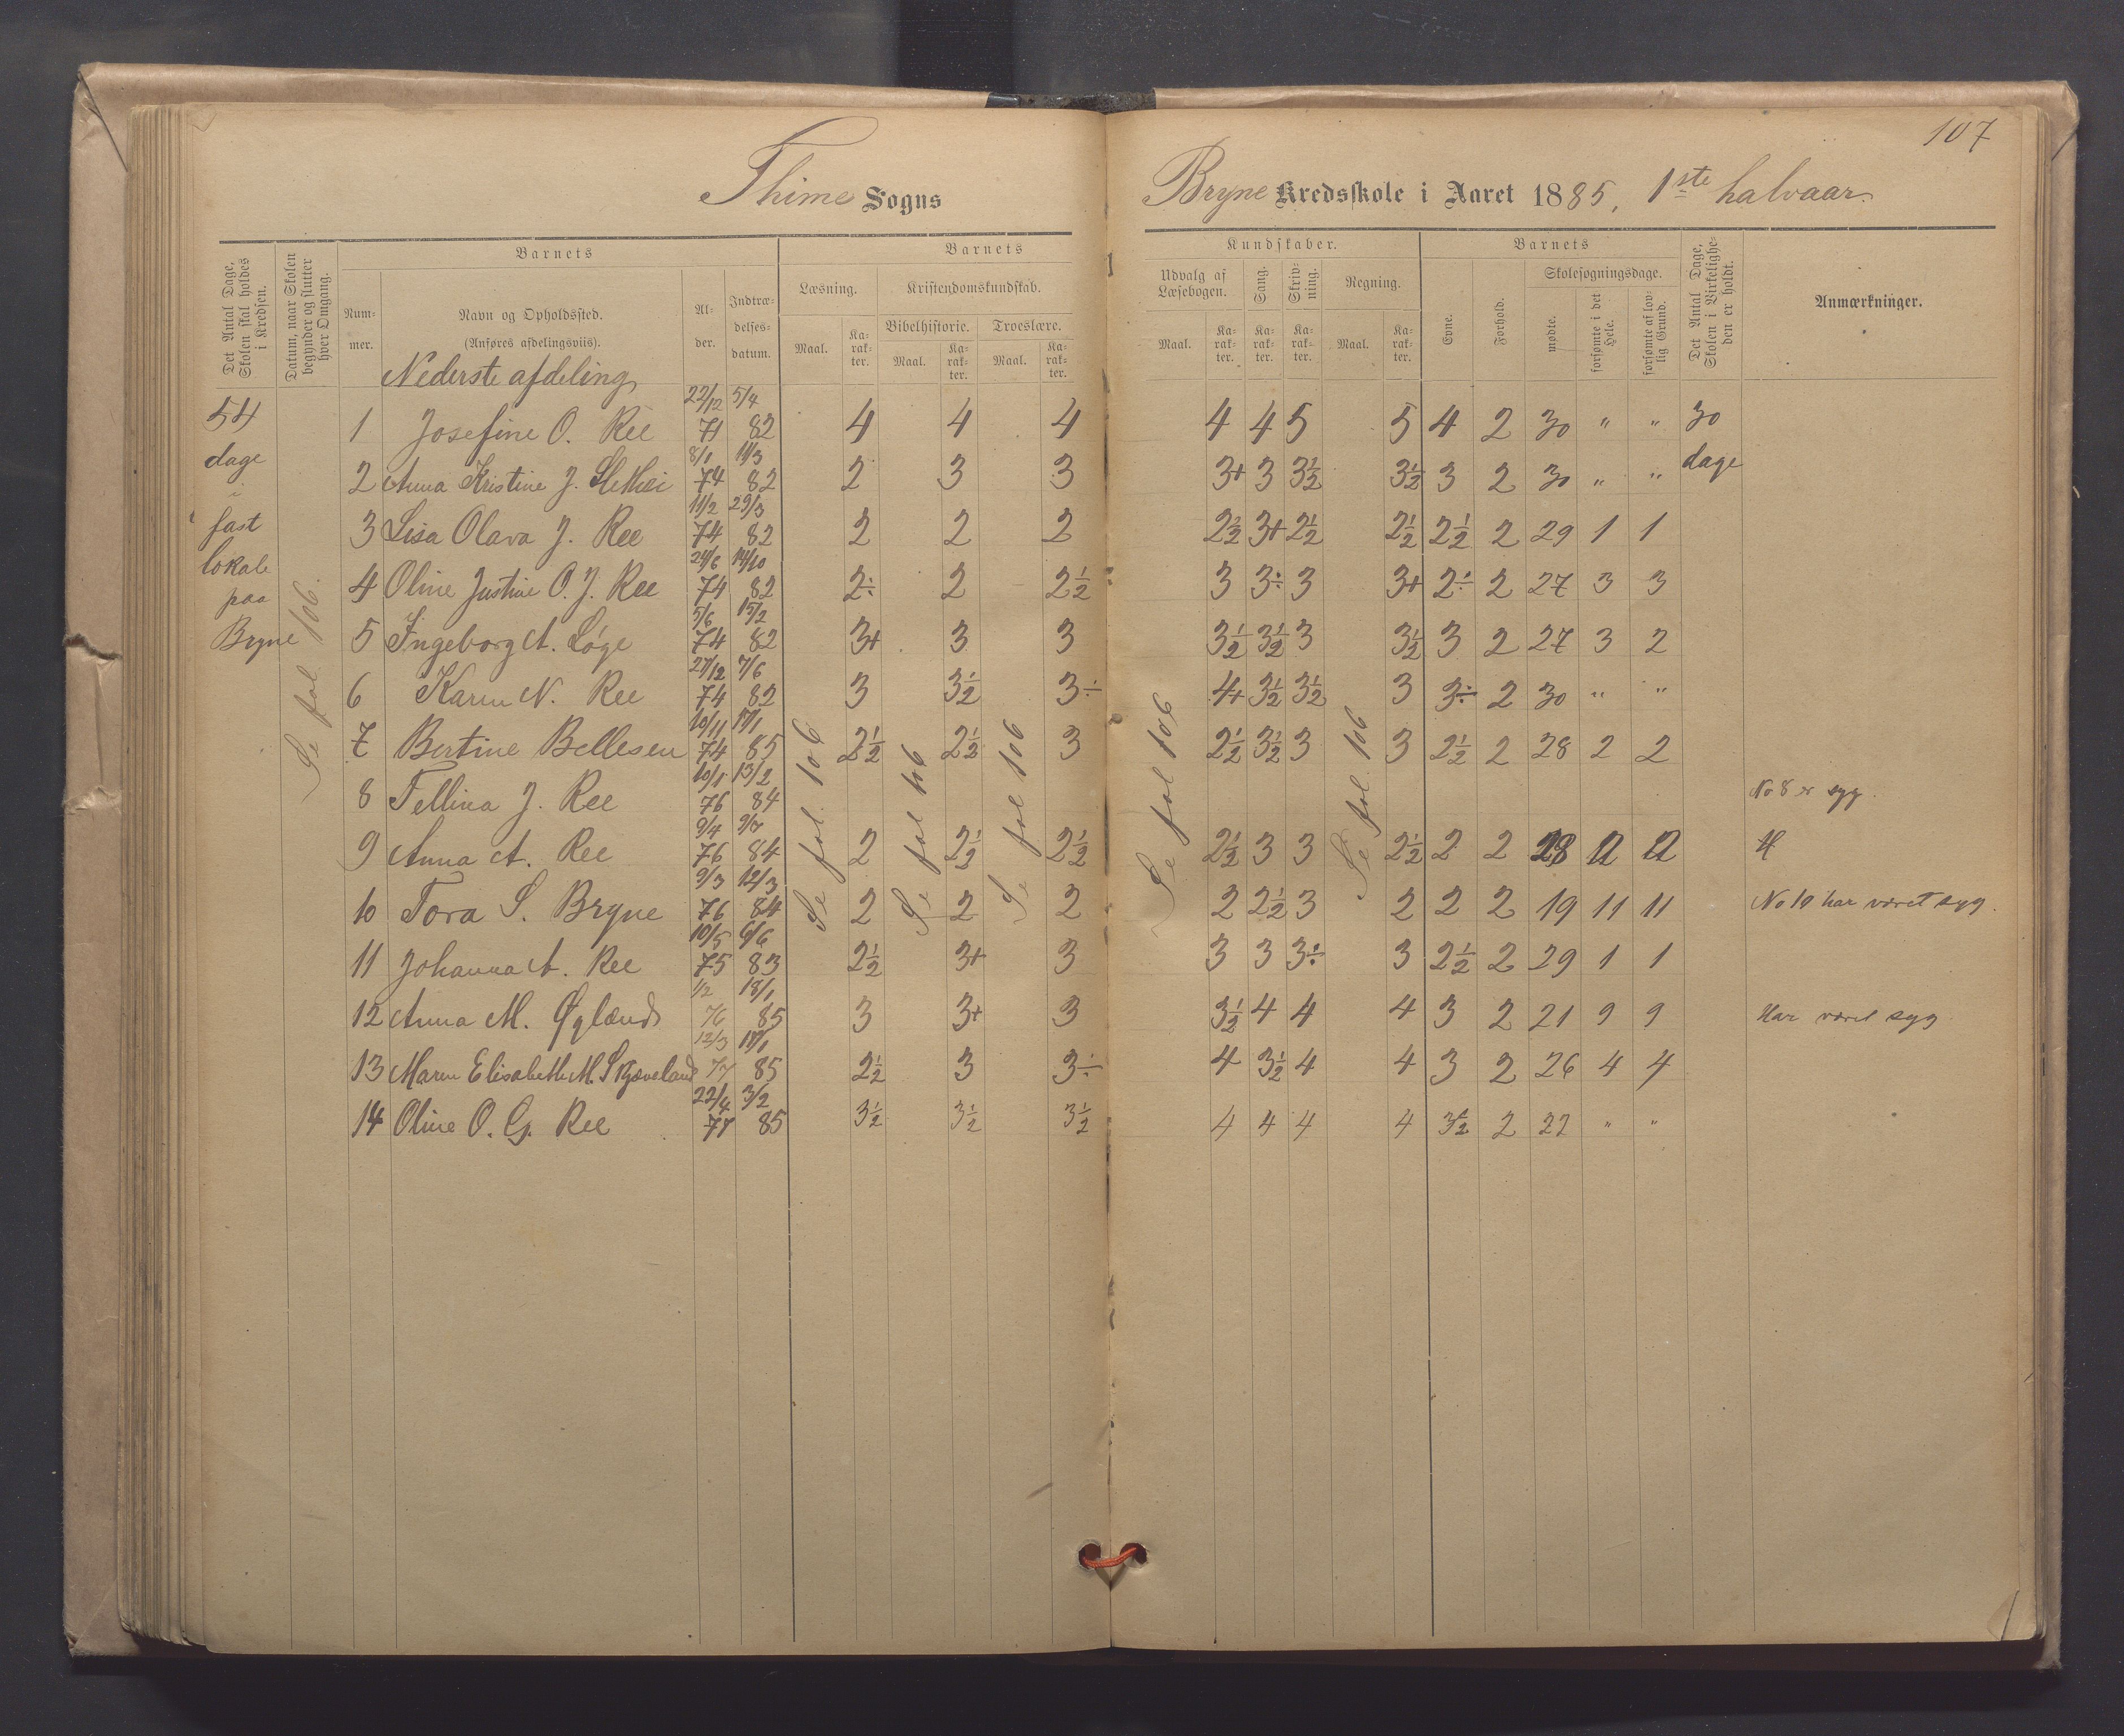 107
Thime Sogns
Bryne Kredsskole i Aaret 1885, 1ste halvaar.
Det Antal Dage, Skolen skal holdes i Kredsen.
Datum, naar Skolen begynder og slutter hver Omgang.
Barnets
Nummer.
Navn og Opholdssted.
(Anføres afdelingsviis).
Alder.
Indtrædelsesdatum.
Barnets
Læsning.
Maal. Karakter.
Kristendomskundskab.
Bibelhistorie. Troeslære.
Maal. Karakter. Maal. Karakter.
Kundskaber.
Udvalg af Læsebogen.
Maal. Karakter.
Sang. Karakter.
Skrivning. Karakter.
Regning.
Maal. Karakter.
Barnets
Evne. Forhold.
Skolesøgningsdage.
mødte. forsømte i det Hele. forsømte af lovlig Grund.
Det Antal Dage, Skolen i Virkeligheden er holdt.
Anmærkninger.
Nederste afdeling
54 dage i fast lokale paa Bryne
Se fol. 106.
1 Josefine O. Ree 22/12 71 5/4 82 4 4 4 4 4 5 5 4 2 30 " " 30 dage
2 Anna Kristine J. 8/1 74 11/3 82 2 3 3 3+ 3 3½ 3½ 3 2 30 " "
3 Lisa Olava J. Ree 11/2 74 29/3 82 2 2 2 2½ 3+ 2½ 2½ 2½ 2 29 1 1
4 Oline Justine O. J. Ree 24/6 74 14/10 82 2÷ 2 2½ 3 3÷ 3 3+ 2÷ 2 27 3 3
5 Ingeborg A. Løge 5/6 74 15/2 82 3+ 3 3 3½ 3½ 3 3½ 3 2 27 3 2
6 Karen N. Ree 27/12 74 7/6 82 3 3½ 3÷ 4+ 3½ 3½ 3 3÷ 2 30 " "
7 Bertine Bellesen 10/11 74 17/1 85 2½ 2½ 3 2½ 3½ 3 3 2½ 2 28 2 2
8 Tellina J. Ree 10/1 76 13/2 84 No 8 er syg.
9 Anna A. Ree 9/4 76 9/7 84 2 2½ 2½ 2½ 3 3 2½ 2 2 28
10 Tora S. Bryne 9/3 76 12/3 84 2 2 2 2 2½ 3 2 2 2 19 11 11 No 10 har været syg.
11 Johanna A. Ree 10/5 75 6/6 83 2½ 3+ 3 3 3 3÷ 3 2½ 2 29 1 1
12 Anna M. Øglænd 1/2 76 18/1 85 3 3+ 3 3½ 4 4 4 3 2 21 9 9 Har været syg
13 Maren Elisabeth M. Skjæveland 12/3 77 85 2½ 3 3÷ 4 3½ 4 4 3 2 26 4 4
14 Oline O. G. Ree 22/4 77 3/2 85 3½ 3½ 3½ 4 4 4 4 3½ 2 22 " "
Se fol. 106
Se fol 106
Se fol 106
Se fol 106
Se fol. 106